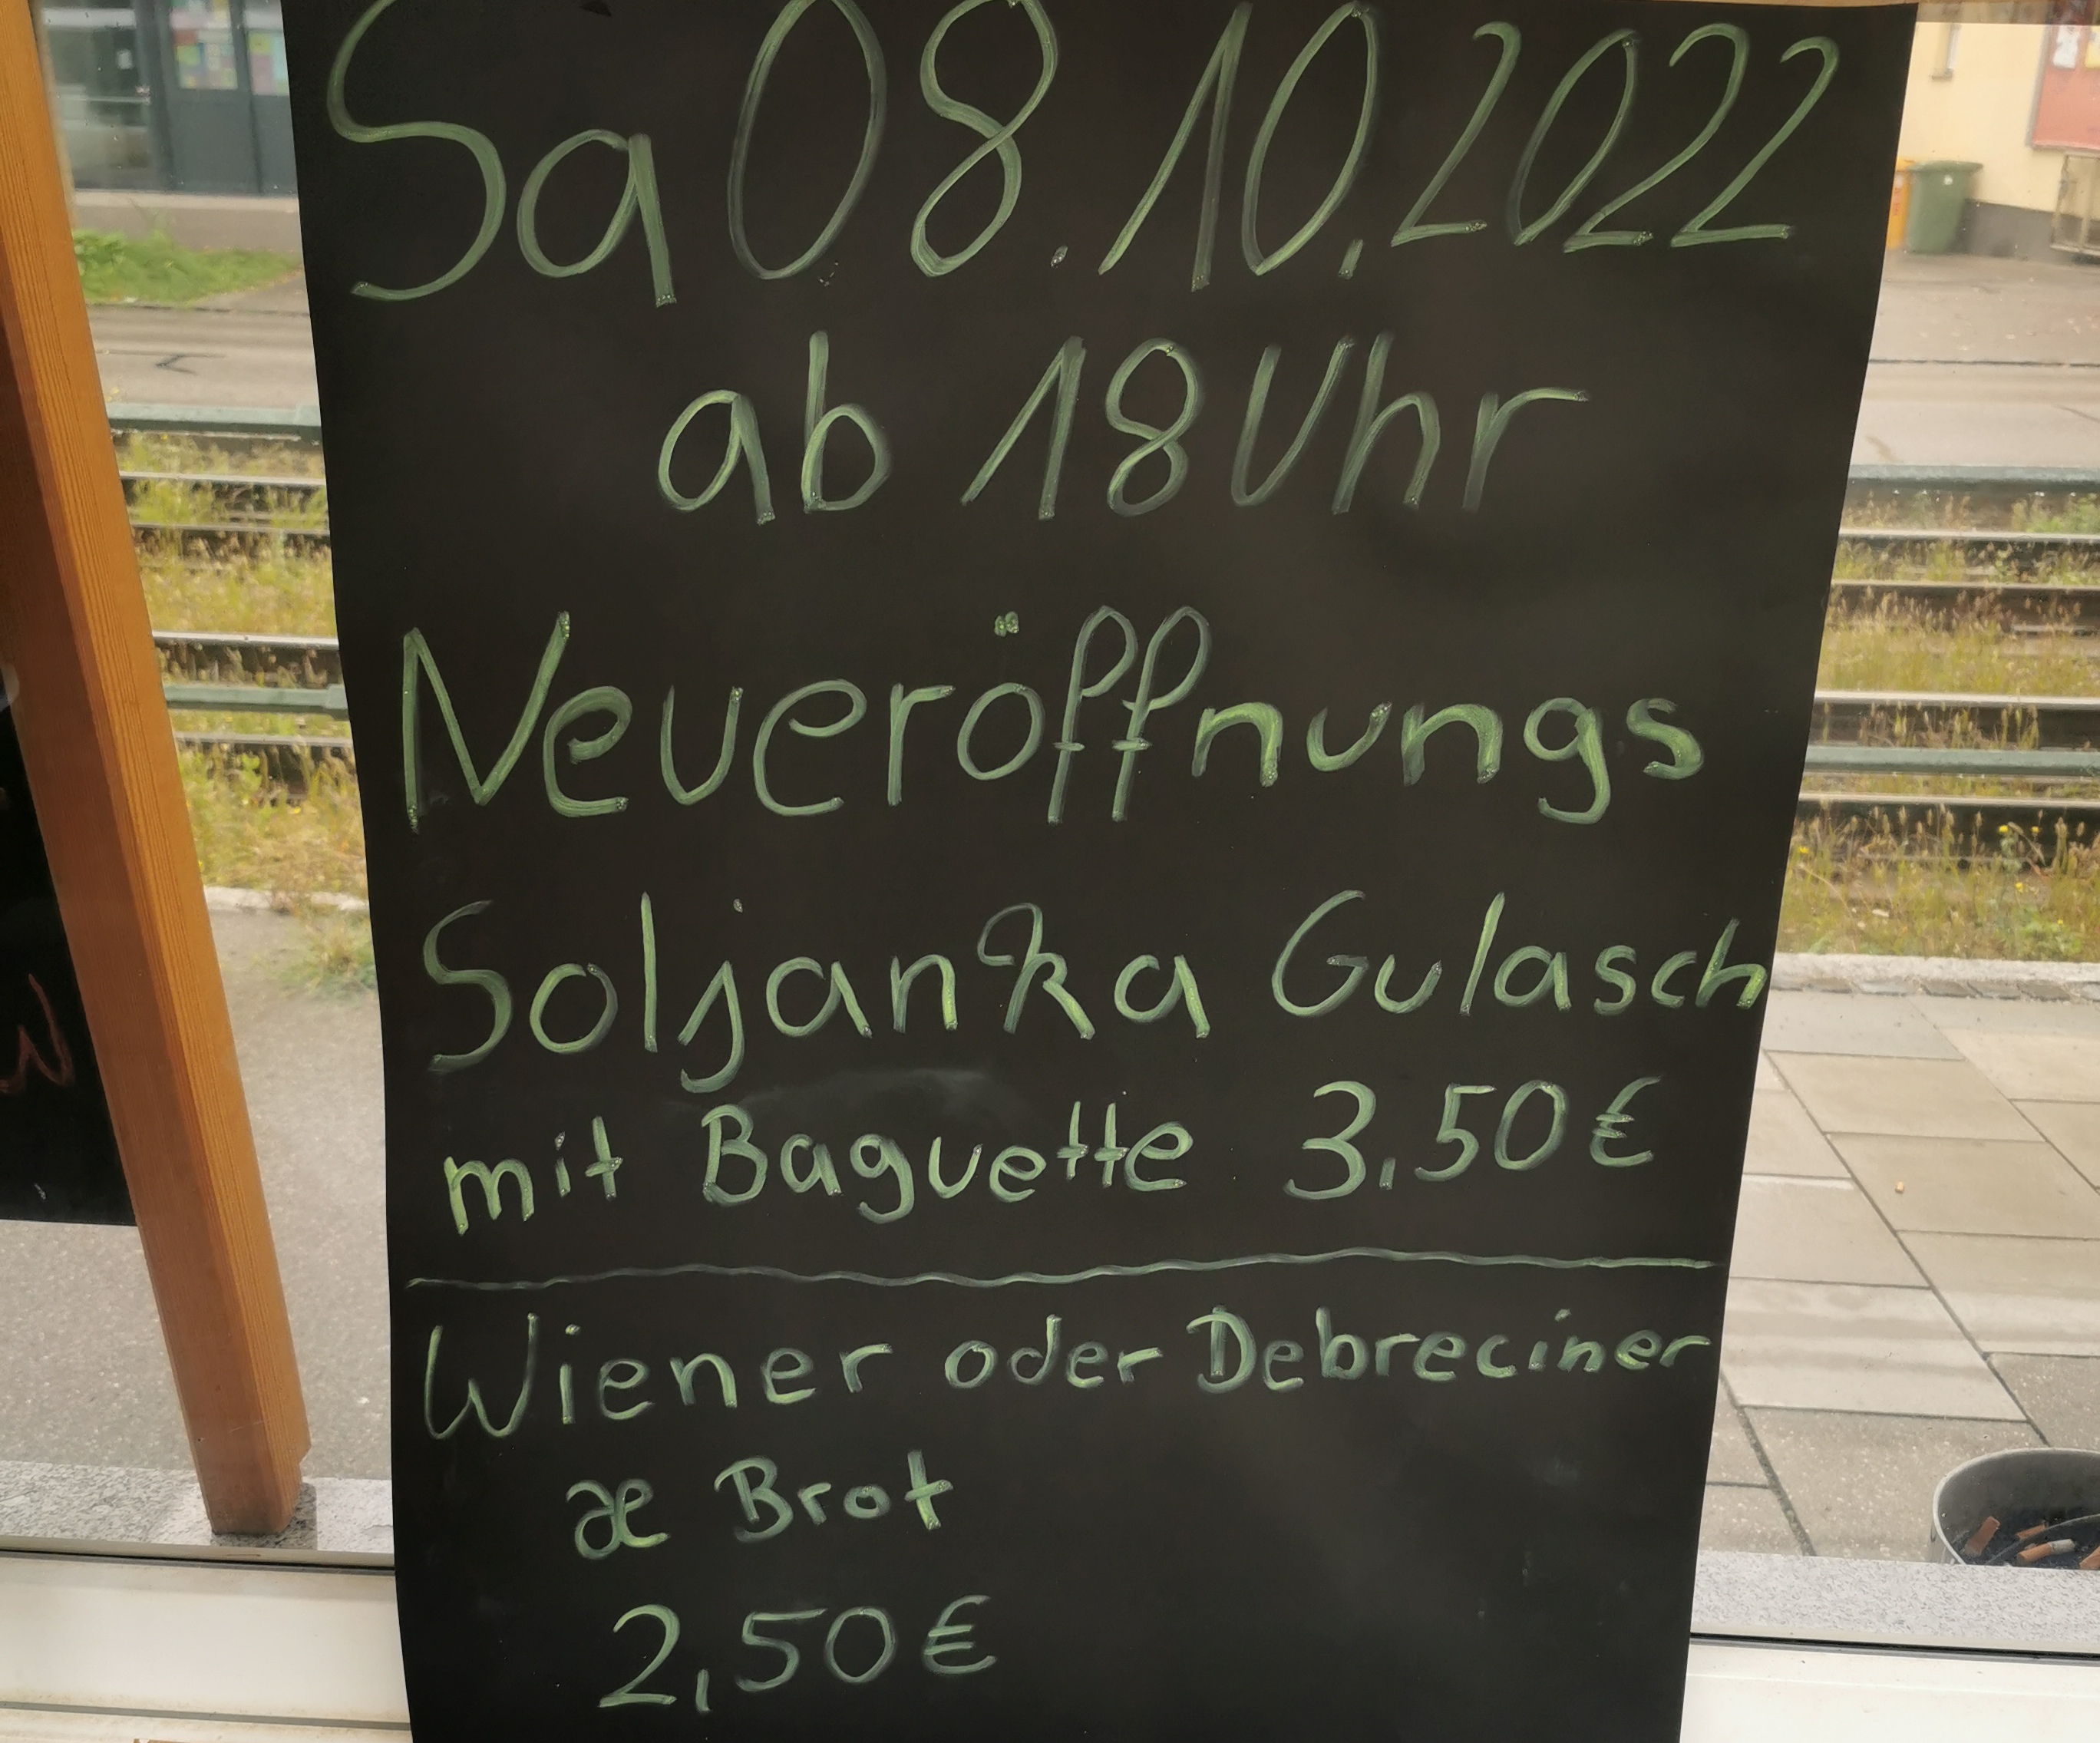 Sa 08.10.2022
ab 18 Uhr
Neueröffnungs
Soljanka Gulasch
mit Baguette 3,50€
Wiener oder Debreciner
æ Brot
2,50€